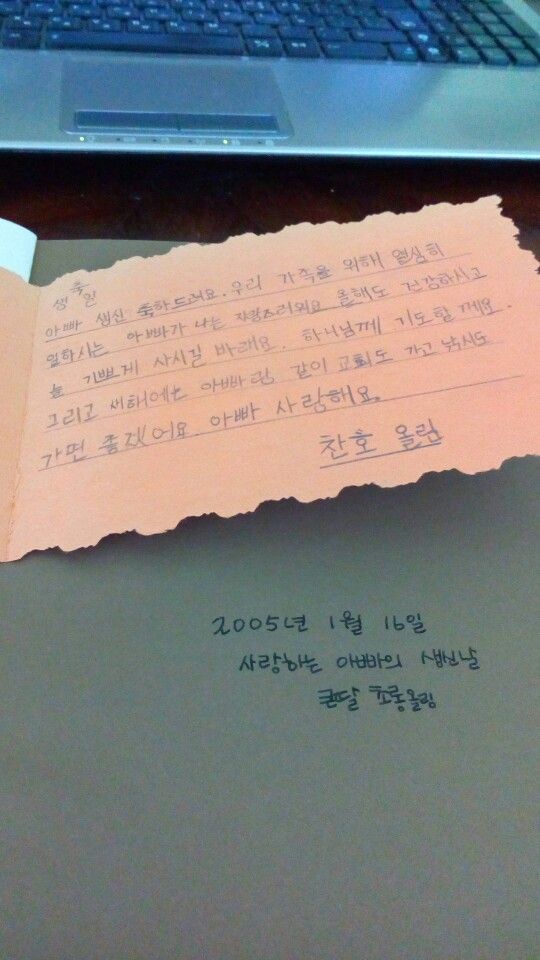 생축일
아빠 생신 축하드려요. 우리 가족을 위해 열심히
일하시는 아빠가 나는 자랑스러워요 올해도 건강하시고
늘 기쁘게 사시길 바래요. 하나님께 기도할께요.
그리고 새해에는 아빠랑 같이 교회도 가고 낚시도
가면 좋겠어요 아빠 사랑해요.
찬호 올림
2005년 1월 16일
사랑하는 아빠의 생신날
큰딸 초롱올림